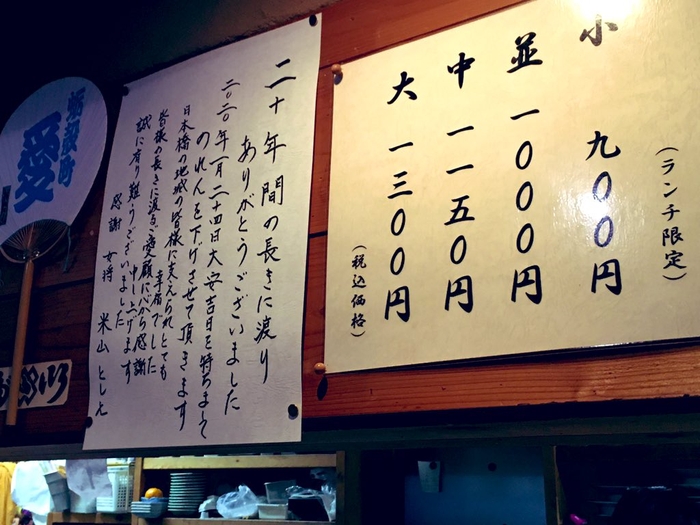 小 九〇〇円
(ランチ限定)
並 一〇〇〇円
中 一一五〇円
大 一三〇〇円
(税込価格)
二十年間の長きに渡り
ありがとうございました
二〇二〇年一月二十四日大安吉日を持ちまして
のれんを下げさせて頂きます
日本橋の地域の皆様に支えられとても
幸福でした
皆様の長きに渡るご愛顧に心から感謝
申し上げます
誠に有り難うございました
感謝 女将 米山としえ
蛎殻町
愛